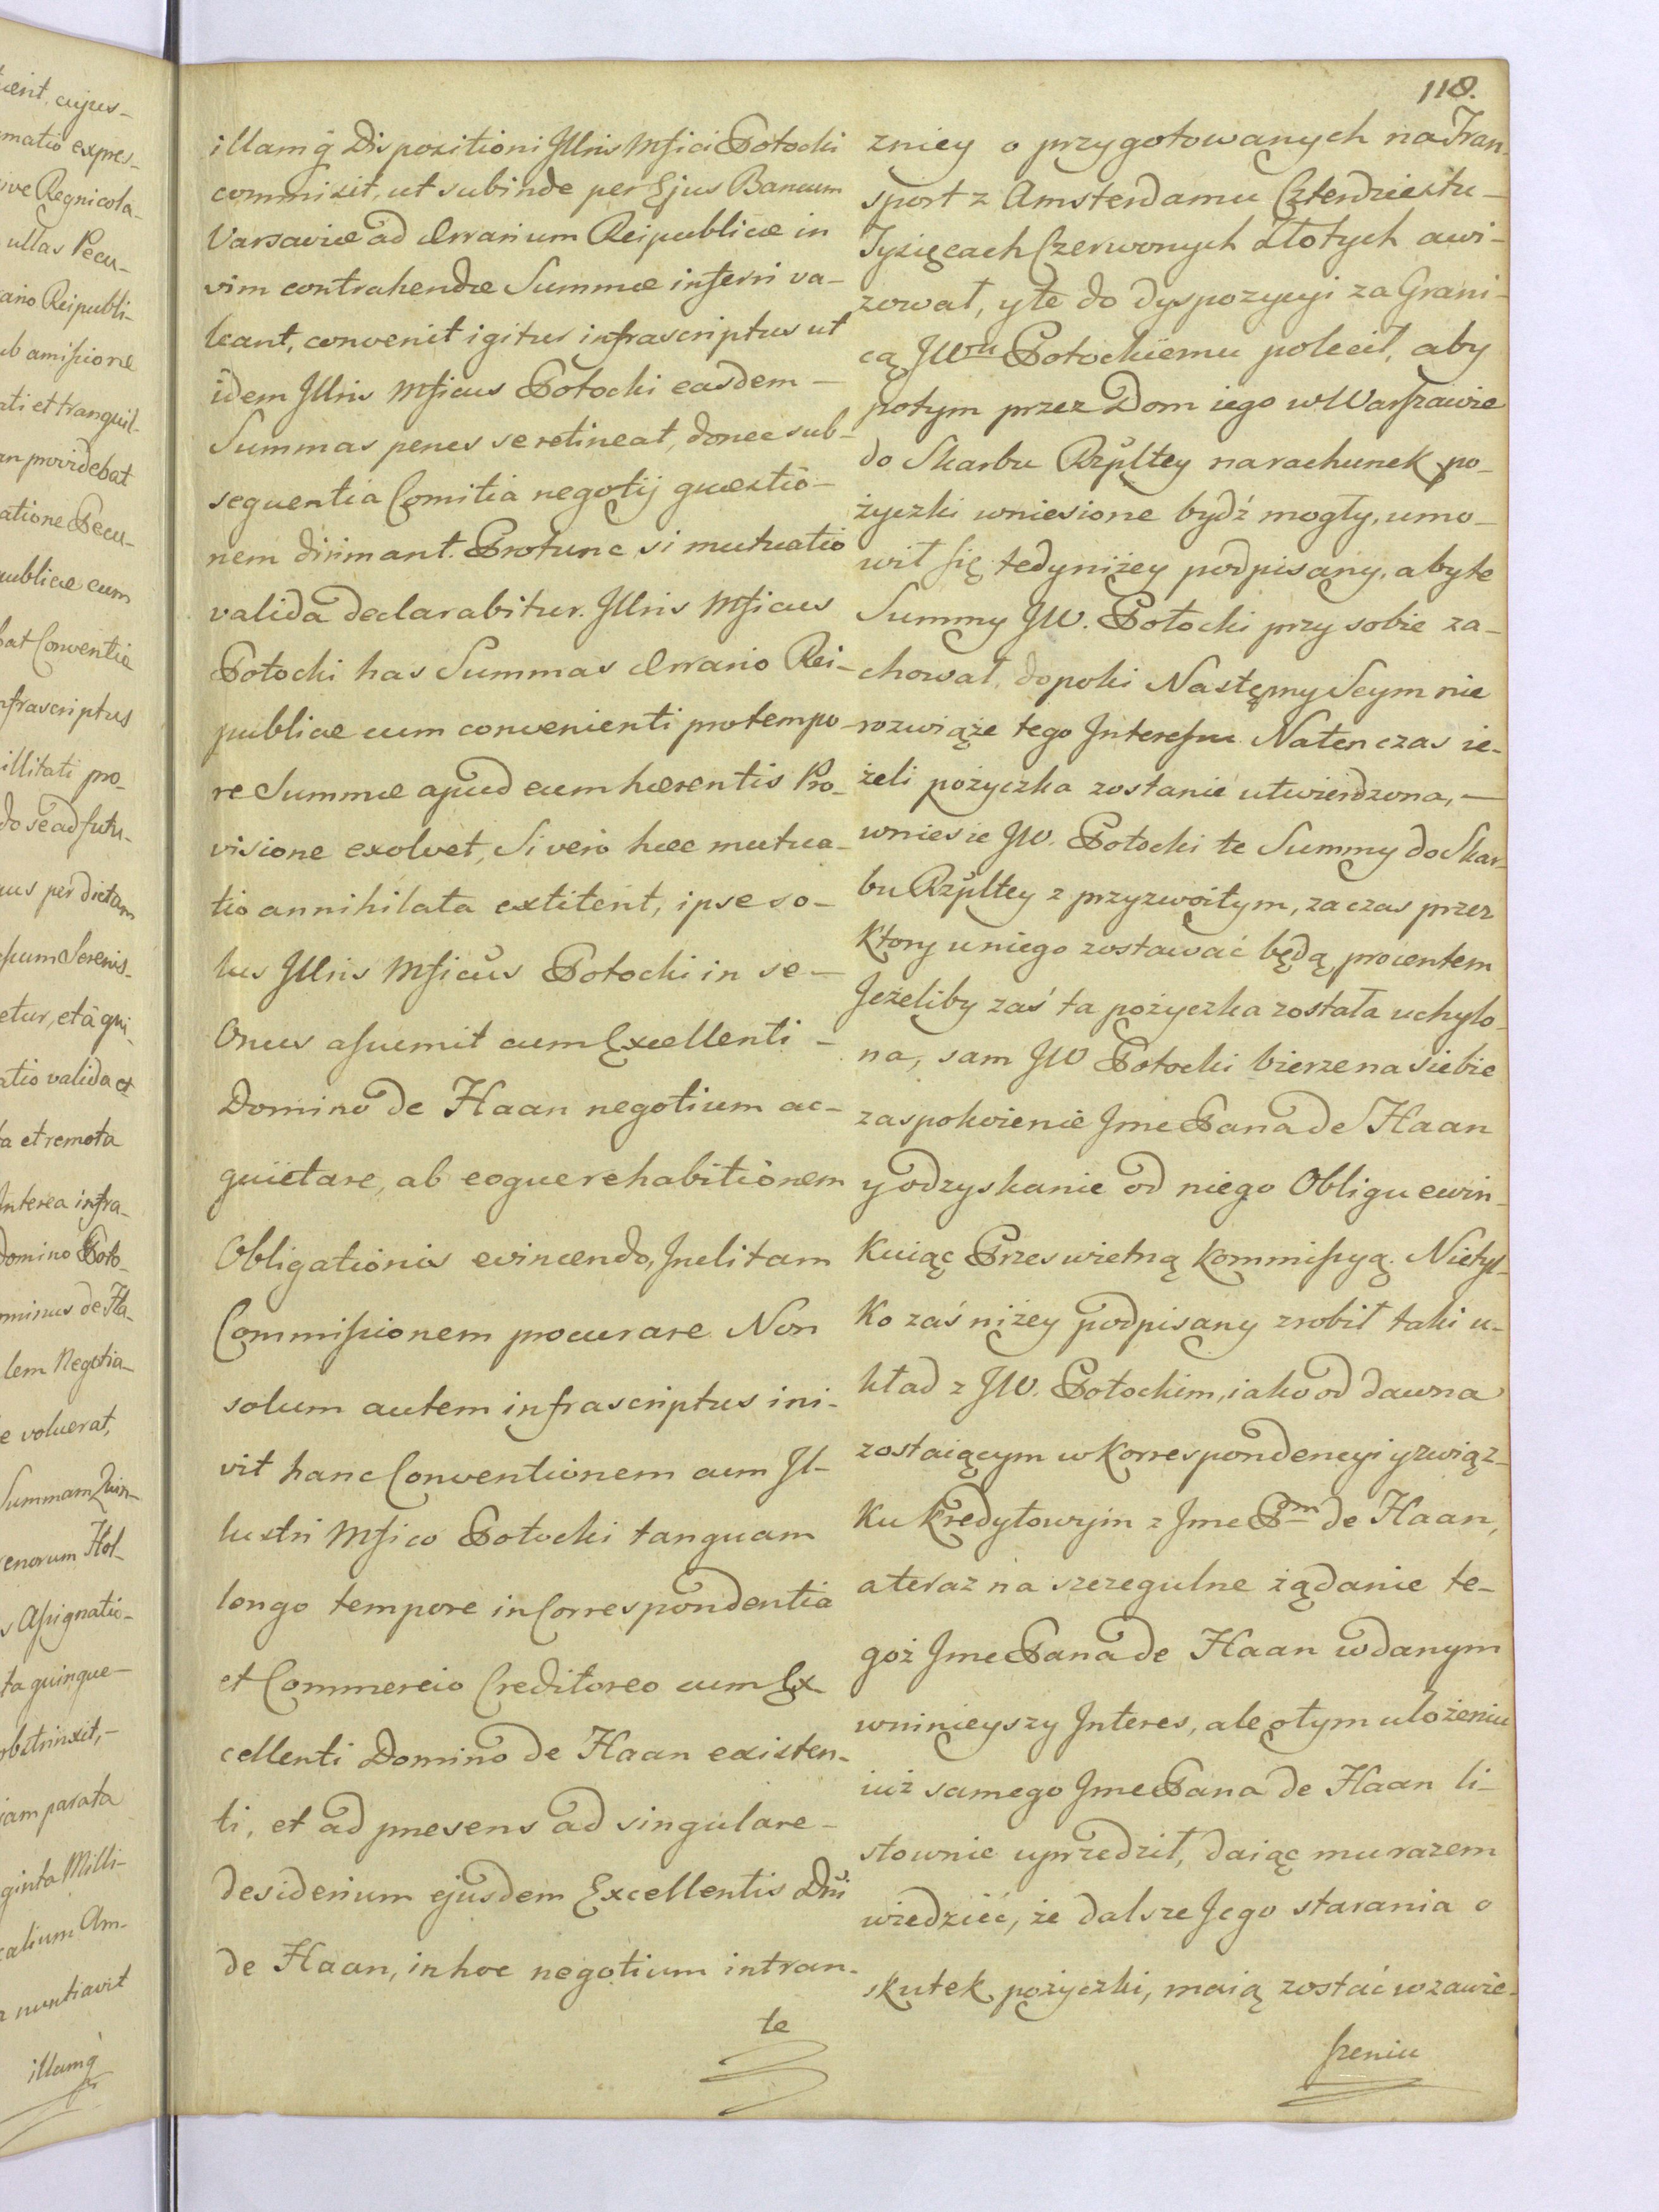 118.
illamq̃ Dispositioni Jllris Mfici Potocki
commisit, ut subinde per Ejus Bancum
Varsaviæ ad Ærarium Reipublicæ in
vim contrahendæ Summæ inferri va-
leant, convenit igitur infrascriptus ut
idem Jllris Mficus Potocki easdem -
Summas penes se retineat, donec sub-
sequentia Comitia negotij quæstio-
nem dirimant. Protunc, si mutuatio
valida declarabitur. Jllris Mficus
Potocki has Summas Ærario Rei-
publicæ cum convenienti pro tempo-
re Summæ apud eum hærentis Pro-
visione exolvet, Si vero hæc mutua-
tio annihilata extiterit, ipse so-
lus Jllris Mficus Potocki in se -
Onus assumit cum Excellenti -
Domino de Haan negotium ac-
quietare, ab eoque rehabitionem
Obligationis evincendo, Jnclitam
Commissionem procurare Non
solum autem infrascriptus ini-
vit hanc Conventionem cum Jl-
lustri Mfico Potocki tanquam
longo tempore in Correspondentia
et Commercio Creditoreo cum Ex-
cellenti Domino de Haan existen-
ti, et ad præsens ad singulare -
desiderium ejusdem Excellentis Dñi
de Haan, in hoc negotium intran-
te
zniey o przygotowanych na Tran-
sport z Amsterdamu Czterdziestu -
Tysięcach Czerwonych Złotych awi-
zował, y te do dyspozycyi za Grani-
cą JWu Potockiemu polecił, aby
potym przez Dom iego w Warszawie
do Skarbu Rzpltey na rachunek po-
życzki wniesione bydź mogły, umo-
wił się tedy niżey podpisany, aby te
Summy JW. Potocki przy sobie za-
chował, dopoki Następny Seym nie
rozwiąże tego Interessu Natenczas ie-
żeli pożyczka zostanie utwierdzona, -
wniesie JW. Potocki te Summy do Skar-
bu Rzpltey z przyzwoitym, za czas przez
Ktory u niego zostawać będą procentem
Jeżeliby zaś ta pożyczka została uchylo-
na, sam JW Potocki bierze na siebie
zaspokoienie Jmc Pana de Haan
y odzyskanie od niego Obligu ewin-
kuiąc Przeswietną Kommissyą. Nietyl-
ko zaś niżey podpisany zrobił taki u-
kład z JW. Potockim, iako od dawna
zostaiącym w Korrespondencyi y związ-
ku Kredytowym z Jmc Pm de Haan,
a teraz na szczegulne żądanie te-
goż Jmc Pana de Haan wdanym
w ninieyszy Jnteres, ale o tym ułożeniu
iuż samego Jmc Pana de Haan li-
stownie uprzedził, daiąc mu razem
wiedzieć, że dalsze Jego starania o
skutek pożyczki, maią zostać w zawie-
szeniu